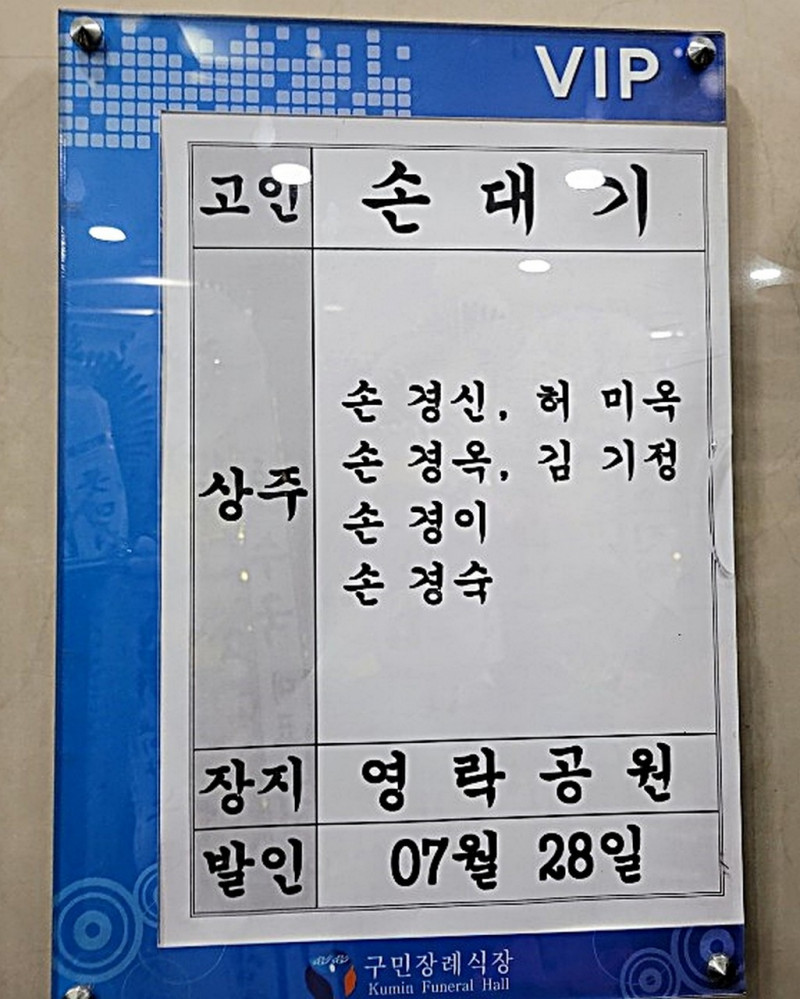 VIP
고인 손 대 기
손 경신, 허 미옥
손 경옥, 김 기정
상주
손 경이
손 경숙
장지 영 락 공 원
발인 07월 28일
구민장례식장
Kumin Funeral Hall